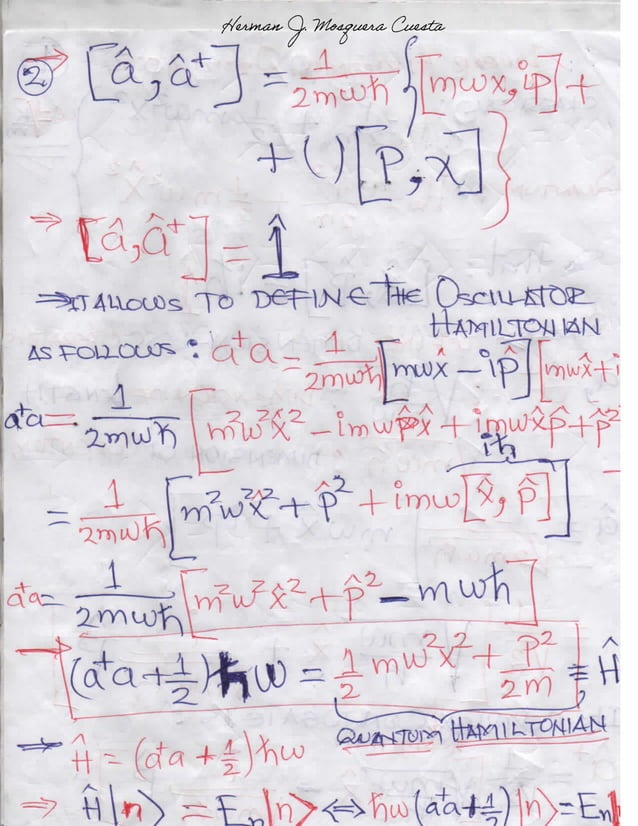 Herman J. Mosquera Cuesta
② ⇒ [â, â⁺] = 1/2mωħ {[mωx, ip] +
+ ( ) [P, x]}
⇒ [â, â⁺] = 1̂
⇒ IT ALLOWS TO DEFINE THE OSCILLATOR
HAMILTONIAN
AS FOLLOWS : a⁺a = 1/2mωħ [mωx̂ − ip̂] [mωx̂ + i
a⁺a = 1/2mωħ [m²ω²x̂² − imωp̂x̂ + imωx̂p̂ + p̂²
iħ
= 1/2mωħ [m²ω²x̂² + p̂² + imω[x̂, p̂]]
a⁺a = 1/2mωħ [m²ω²x̂² + p̂² − mωħ]
→ (a⁺a + 1/2)ħω = 1/2 mω²x² + p²/2m ≡ Ĥ
QUANTUM HAMILTONIAN
⇒ Ĥ = (a⁺a + 1/2)ħω
⇒ Ĥ|n> = Eₙ|n> ⇔ ħω(a⁺a + 1/2)|n> = Eₙ|